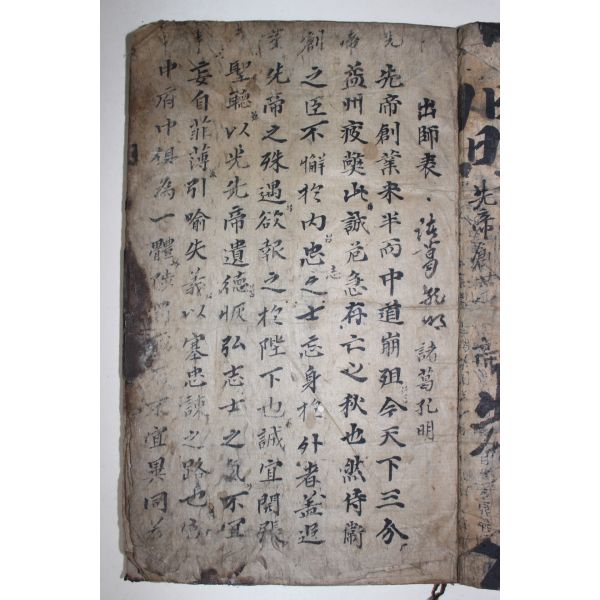 先帝創
出師表 諸葛孔明 諸葛孔明
先帝創業未半而中道崩殂今天下三分
益州疲弊此誠危急存亡之秋也然侍衛
之臣不懈於內忠志之士忘身於外者盖追
先帝之殊遇欲報之於陛下也誠宜開張
聖聽以光先帝遺德恢弘志士之氣不宜
妄自菲薄引喻失義以塞忠諫之路也宮
中府中俱為一體陟罰宜異同若